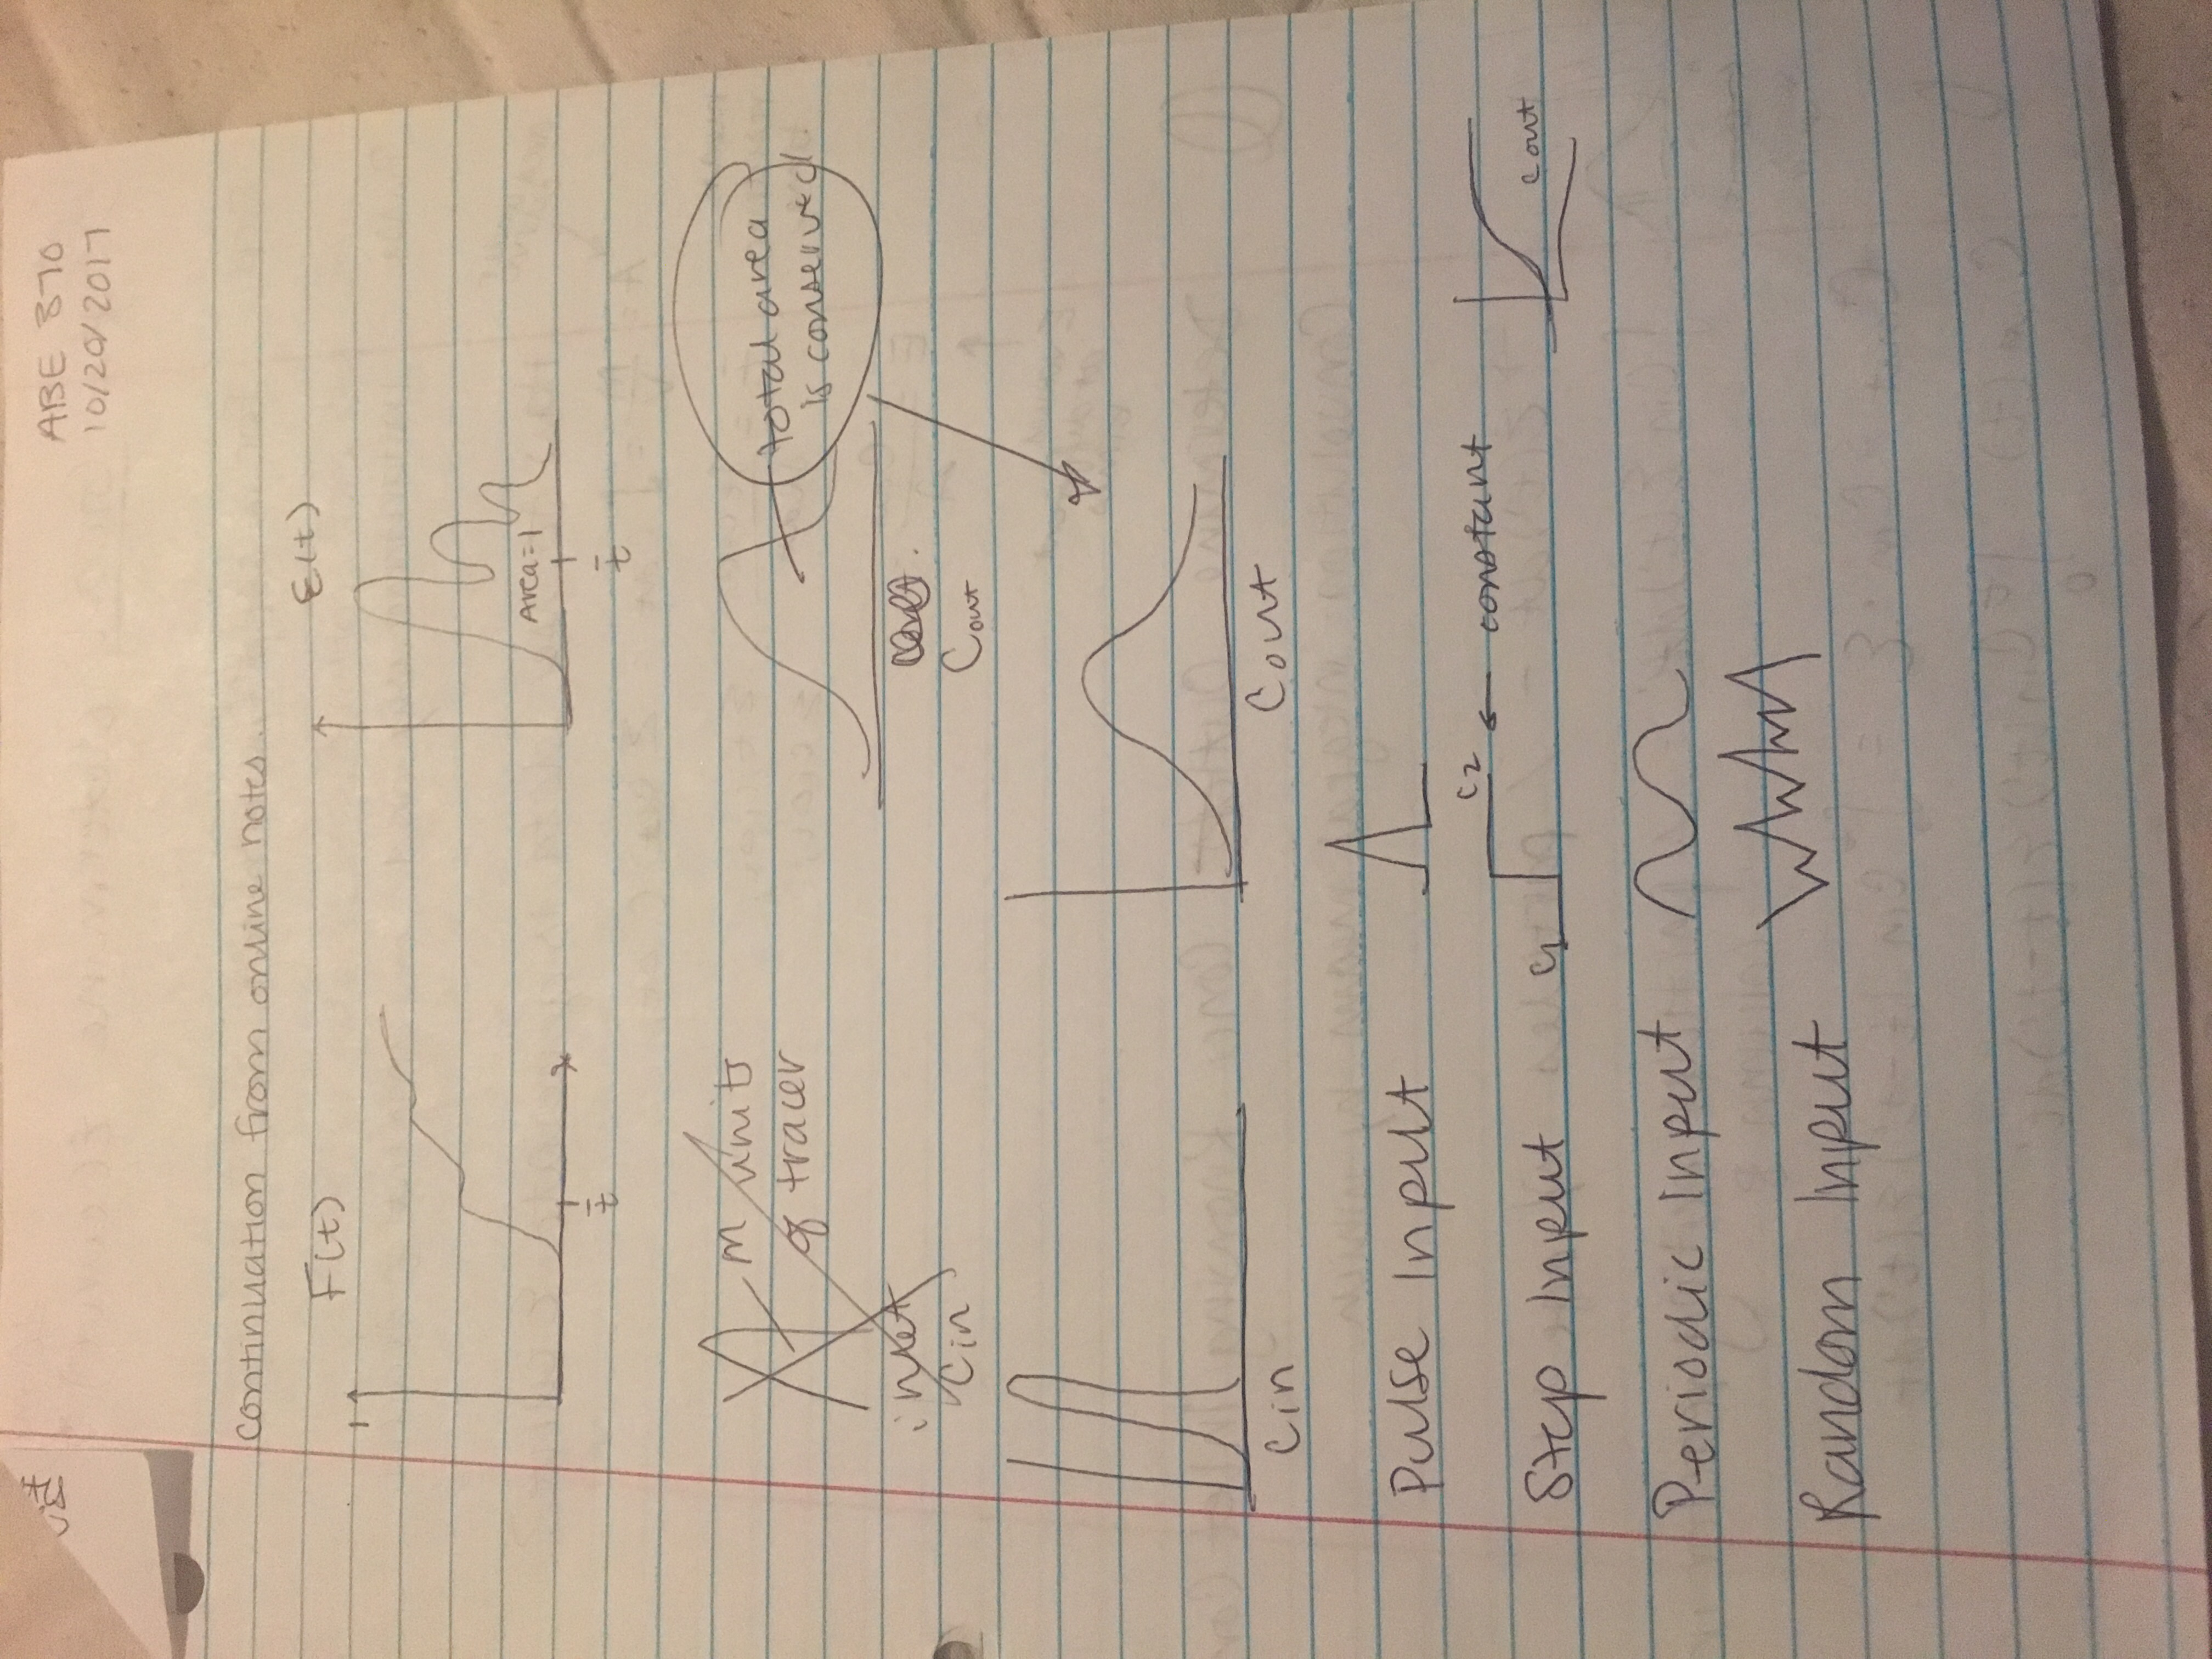 ABE 870
10/20/2017
continuation from online notes.
F(t)
1
t̄
E(t)
Area=1
t̄
M units
of tracer
inlet
Cin
total area
is conserved.
Cout
Cin
Cout
Pulse Input
Step Input
C1
C2
← constant
Cout
Periodic Input
Random Input